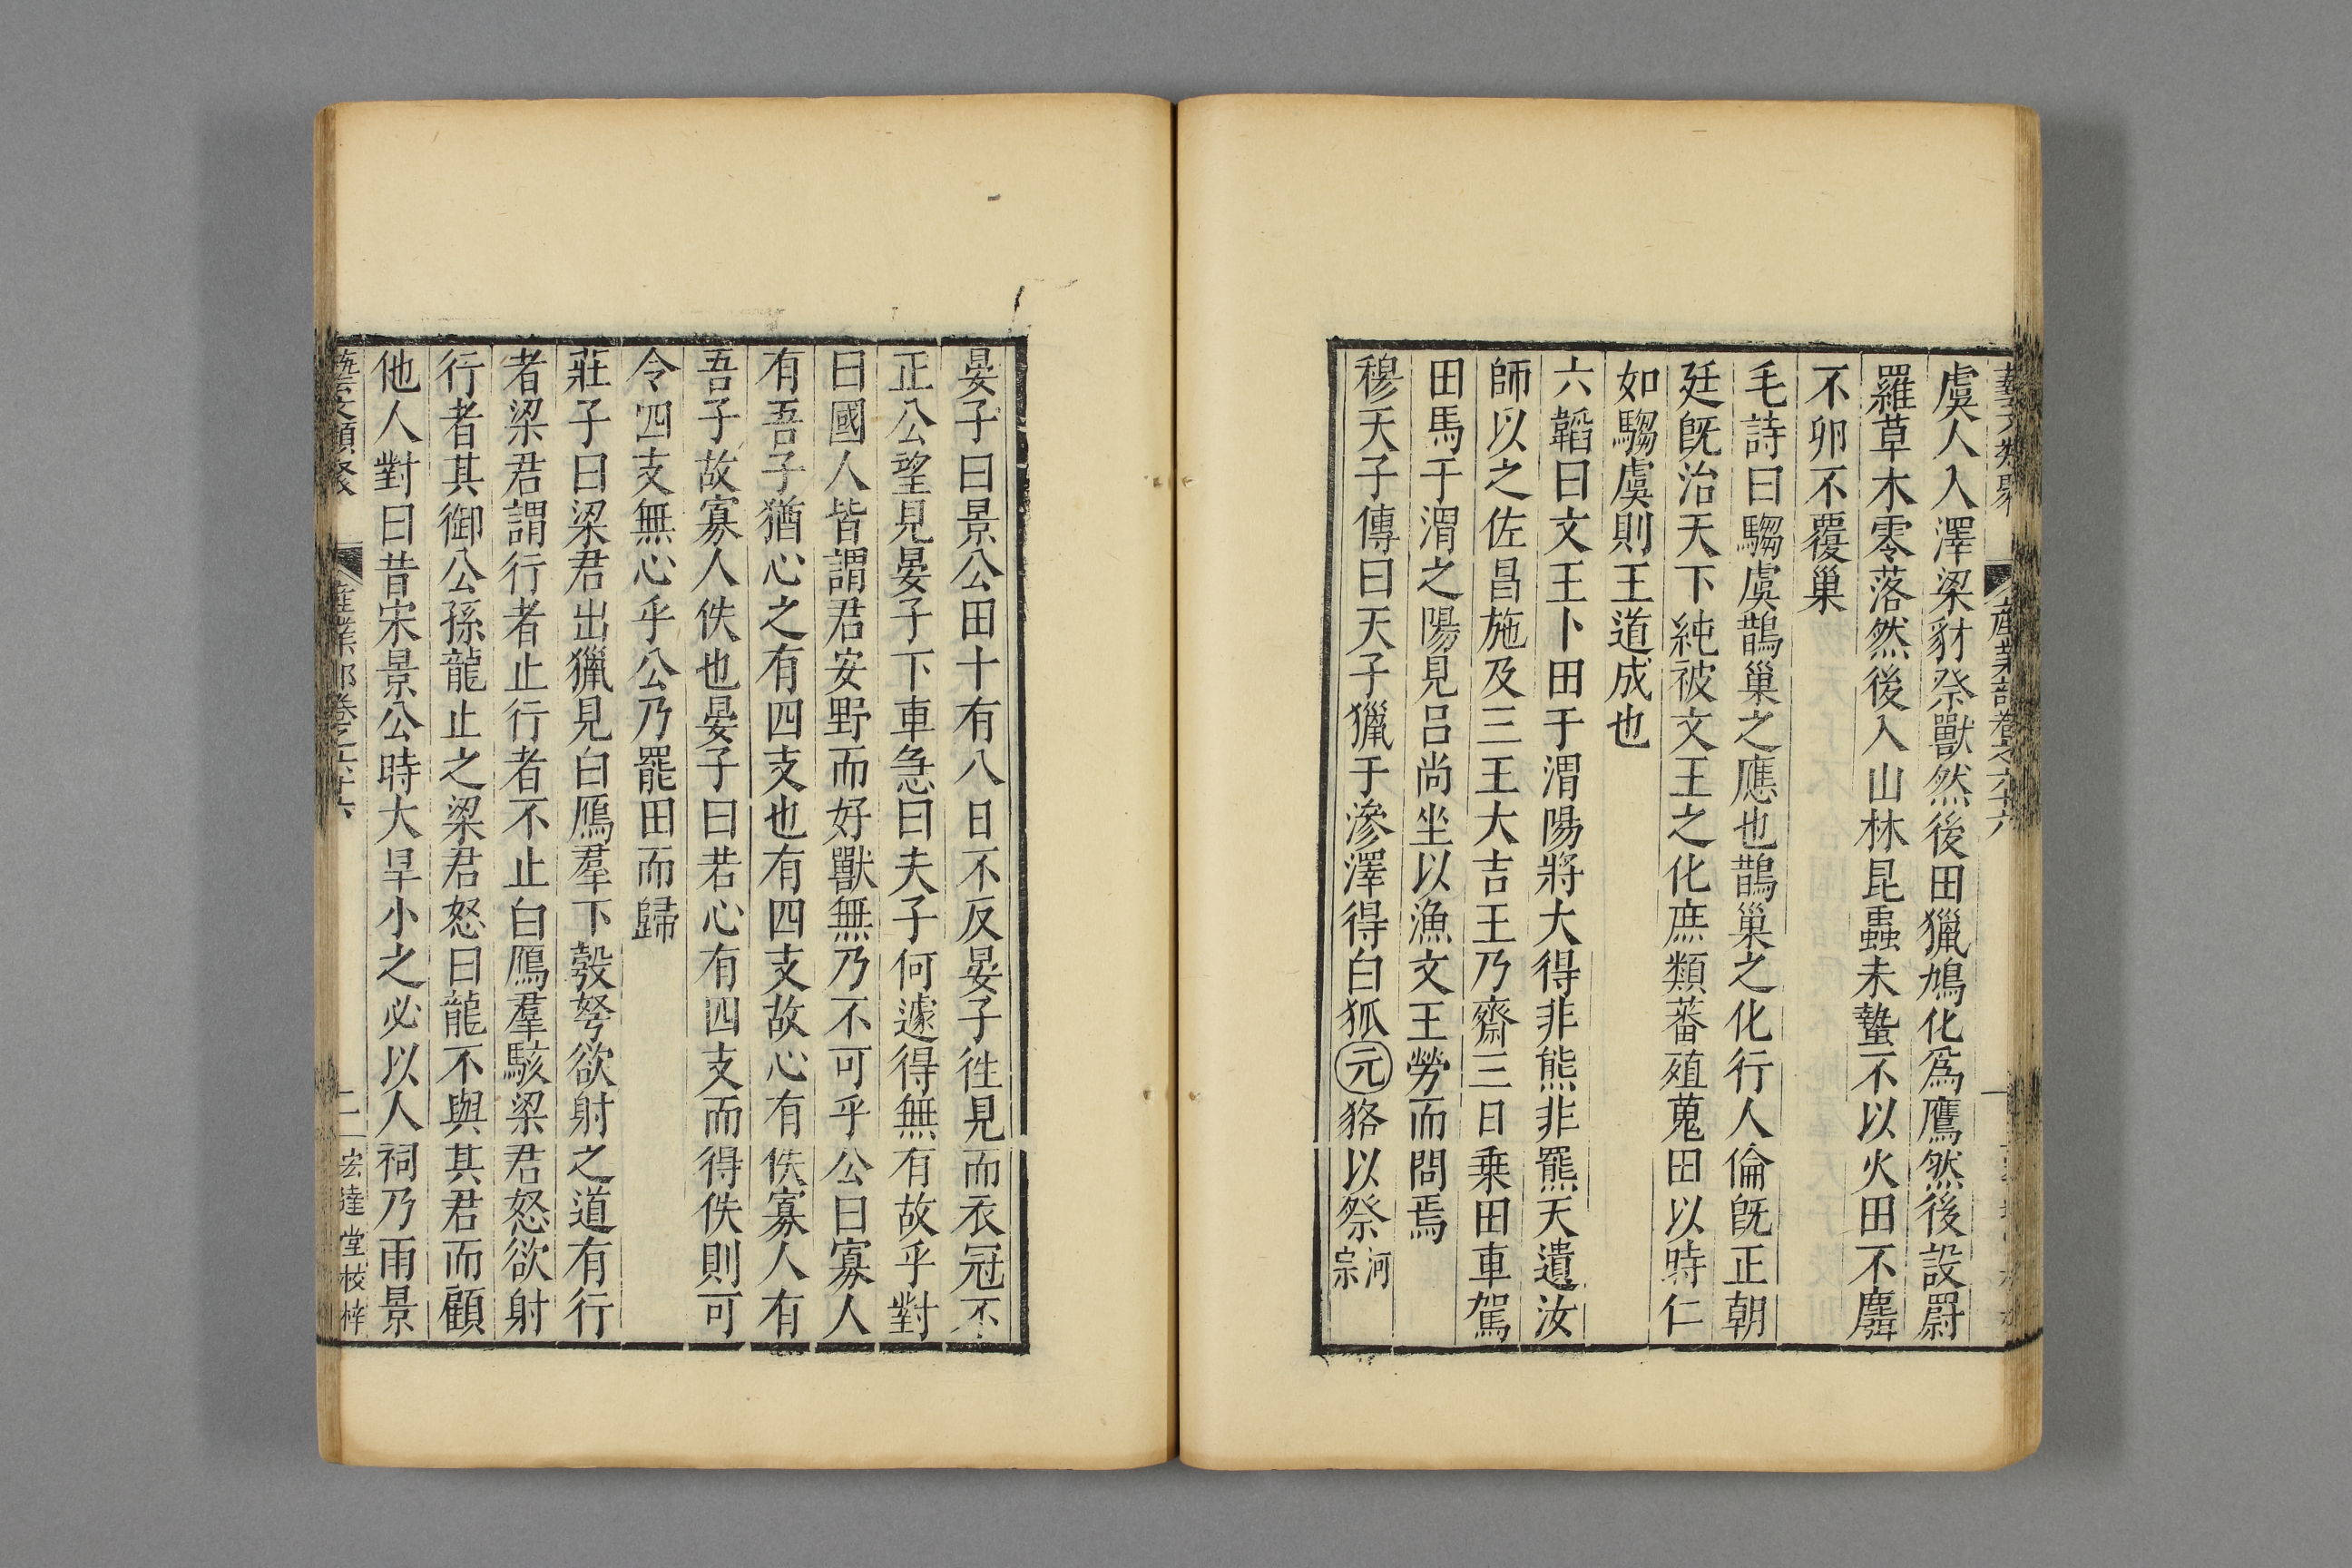 藝文類聚 產業部卷之六十六 一
虞人入澤梁豺祭獸然後田獵鳩化爲鷹然後設罻
羅草木零落然後入山林昆蟲未蟄不以火田不麛
不卵不覆巢
毛詩曰騶虞鵲巢之應也鵲巢之化行人倫旣正朝
廷旣治天下純被文王之化庶類蕃殖蒐田以時仁
如騶虞則王道成也
六韜曰文王卜田于渭陽將大得非熊非羆天遺汝
師以之佐昌施及三王大吉王乃齋三日乗田車駕
田馬于渭之陽見呂尚坐以漁文王勞而問焉
穆天子傳曰天子獵于滲澤得白狐元狢以祭河宗
晏子曰景公田十有八日不反晏子徃見而衣冠不
正公望見晏子下車急曰夫子何遽得無有故乎對
曰國人皆謂君安野而好獸無乃不可乎公曰寡人
有吾子猶心之有四支也有四支故心有佚寡人有
吾子故寡人佚也晏子曰若心有四支而得佚則可
令四支無心乎公乃罷田而歸
莊子曰梁君出獵見白鴈羣下彀弩欲射之道有行
者梁君謂行者止行者不止白鴈羣駭梁君怒欲射
行者其御公孫龍止之梁君怒曰龍不與其君而顧
他人對曰昔宋景公時大旱小之必以人祠乃雨景
藝文類聚 產業部卷之六十六 二 宏達堂校梓